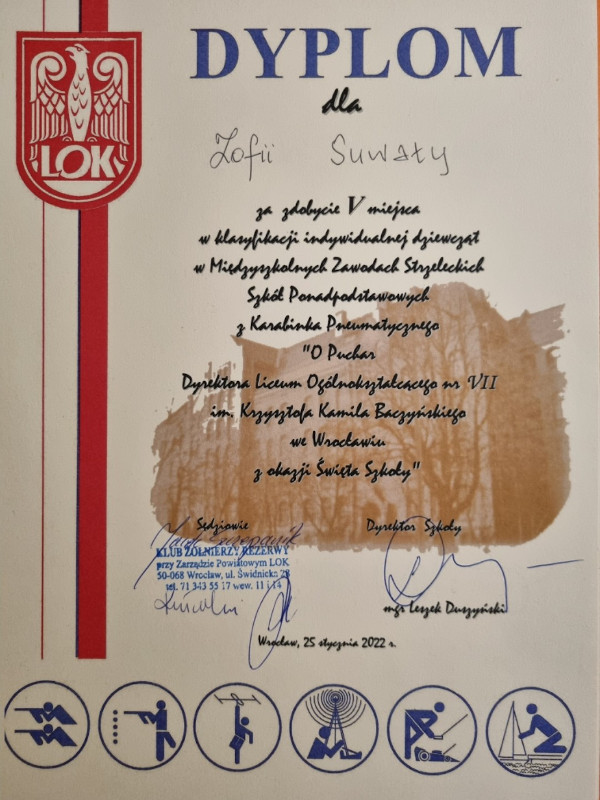 DYPLOM
LOK
dla
Zofii Suwały
za zdobycie V miejsca
w klasyfikacji indywidualnej dziewcząt
w Międzyszkolnych Zawodach Strzeleckich
Szkół Ponadpodstawowych
z Karabinka Pneumatycznego
"O Puchar
Dyrektora Liceum Ogólnokształcącego nr VII
im. Krzysztofa Kamila Baczyńskiego
we Wrocławiu
z okazji Święta Szkoły"
Sędziowie Dyrektor Szkoły
KLUB ŻOŁNIERZY REZERWY
przy Zarządzie Powiatowym LOK
50-068 Wrocław, ul. Świdnicka 28
tel. 71 343 55 17 wew. 11 i 14
mgr Leszek Duszyński
Wrocław, 25 stycznia 2022 r.